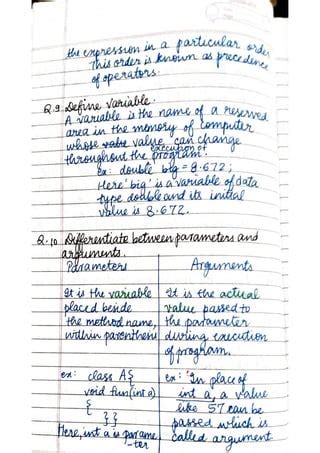 the expression in a particular order
This order is known as precedence
of operators.
Q.9. Define variable.
A variable is the name of a reserved
area in the memory of computer
whose value can change
throughout the execution of program.
ex: double big = 8.672;
Here 'big' is a variable of data
type double and its initial
value is 8.672.
Q.10. Differentiate between parameters and
arguments.
Parameters
It is the variable
placed beside
the method name,
within parenthesis
ex: class A{
void fun(int a)
{
}}
Here, int a is parame
-ter
Arguments
It is the actual
value passed to
the parameter
during execution
of program.
ex: In place of
int a, a value
like 57 can be
passed which is
called argument